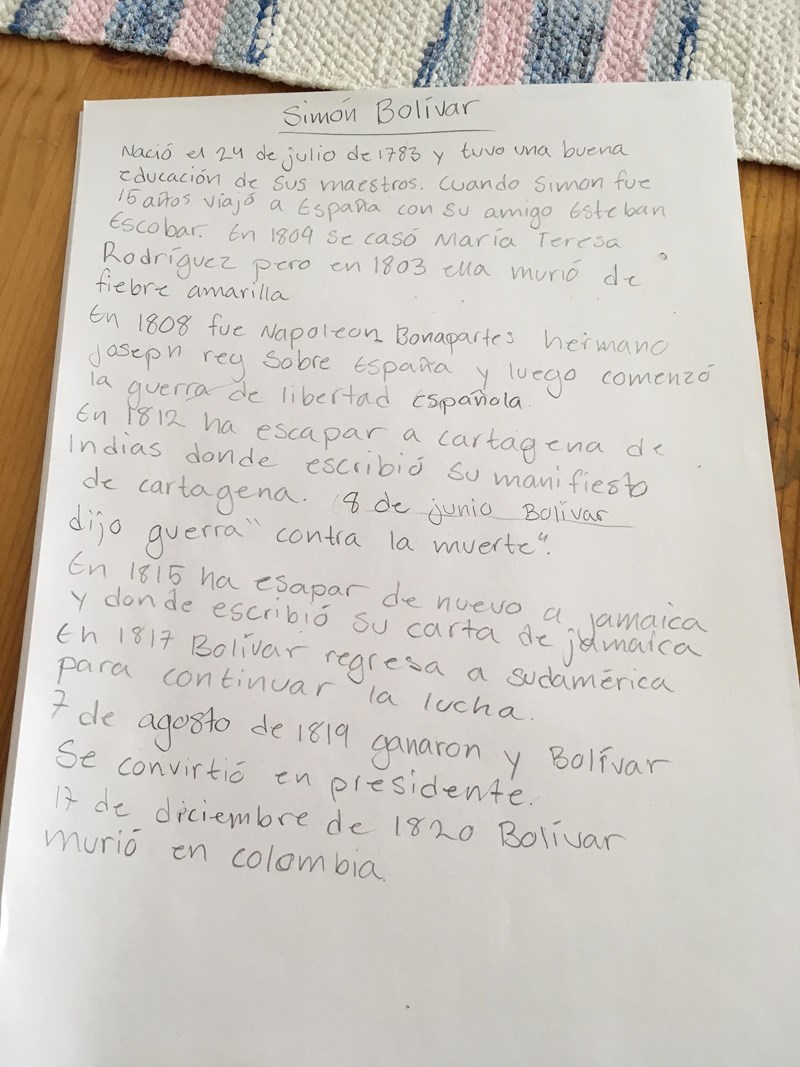 Simón Bolívar
Nació el 24 de julio de 1783 y tuvo una buena
educación de sus maestros. Cuando Simon fue
15 años viajó a España con su amigo Esteban
Escobar. En 1804 se casó María Teresa
Rodríguez pero en 1803 ella murió de
fiebre amarilla
En 1808 fue Napoleon Bonapartes hermano
Joseph rey sobre España y luego comenzó
la guerra de libertad española.
En 1812 ha escapar a cartagena de
Indias donde escribió su manifiesto
de cartagena. 8 de junio Bolívar
dijo guerra "contra la muerte".
En 1815 ha esapar de nuevo a jamaica
y donde escribió su carta de jamaica
En 1817 Bolívar regresa a sudamérica
para continuar la lucha.
7 de agosto de 1819 ganaron y Bolívar
Se convirtió en presidente.
17 de diciembre de 1820 Bolívar
murió en colombia.